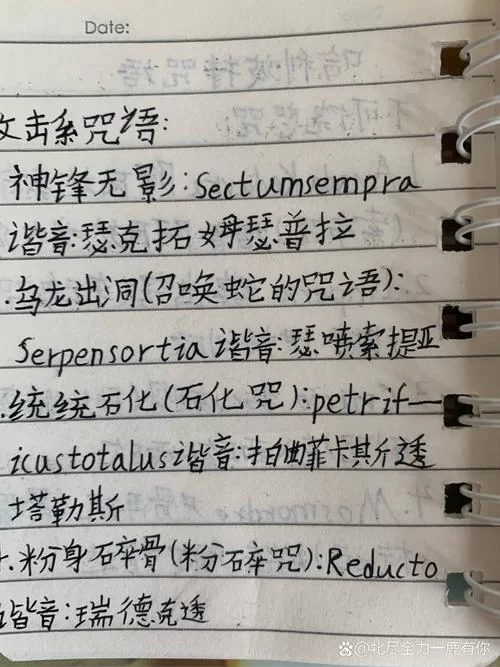 Date:
攻击系咒语:
神锋无影: Sectumsempra
谐音:瑟克拓姆瑟普拉
.乌龙出洞(召唤蛇的咒语):
Serpensortia 谐音:瑟喷索提亚
.统统石化(石化咒): petrif—
icustotalus谐音:拍曲菲卡其斤透
塔勒斯
.粉身碎骨(粉碎咒): Reducto
谐音:瑞德克透
Bai百度 @牤尽全力一鹿有你